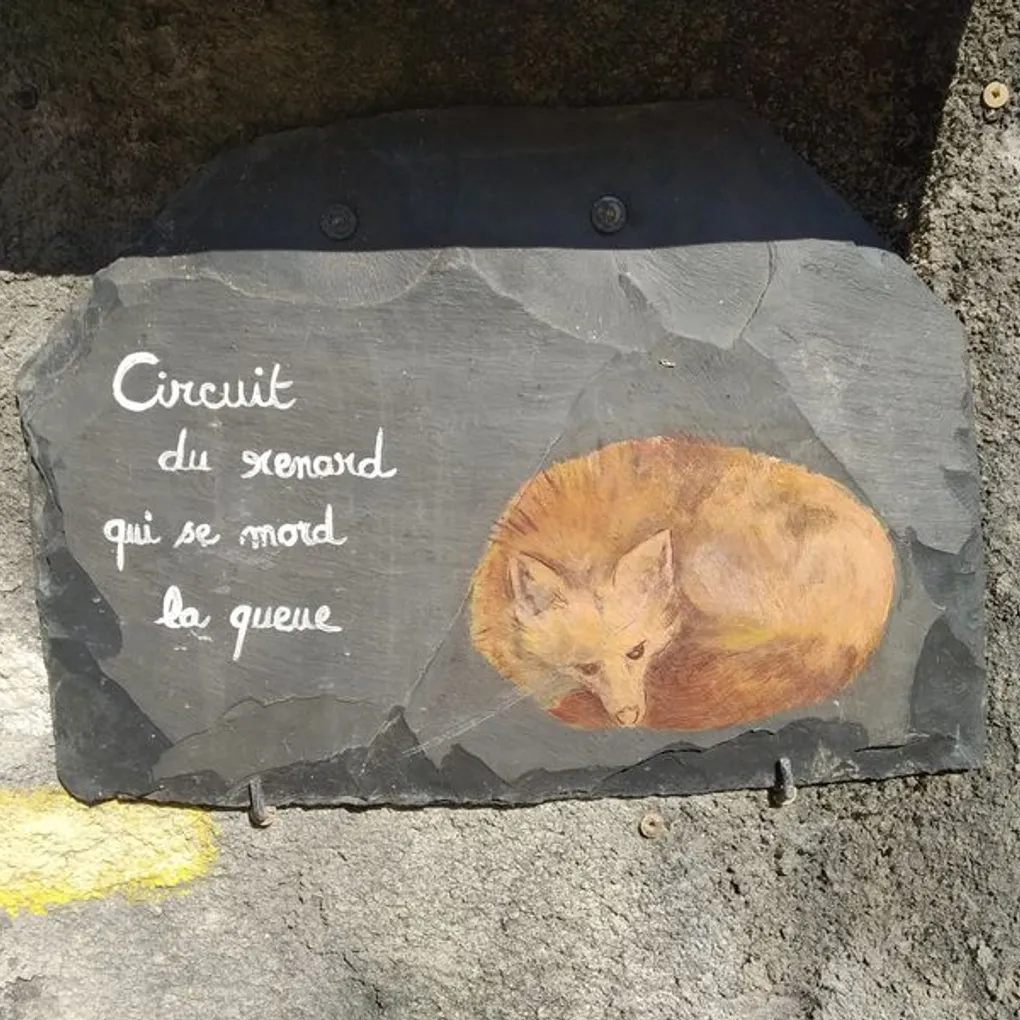 Circuit
du renard
qui se mord
la queue